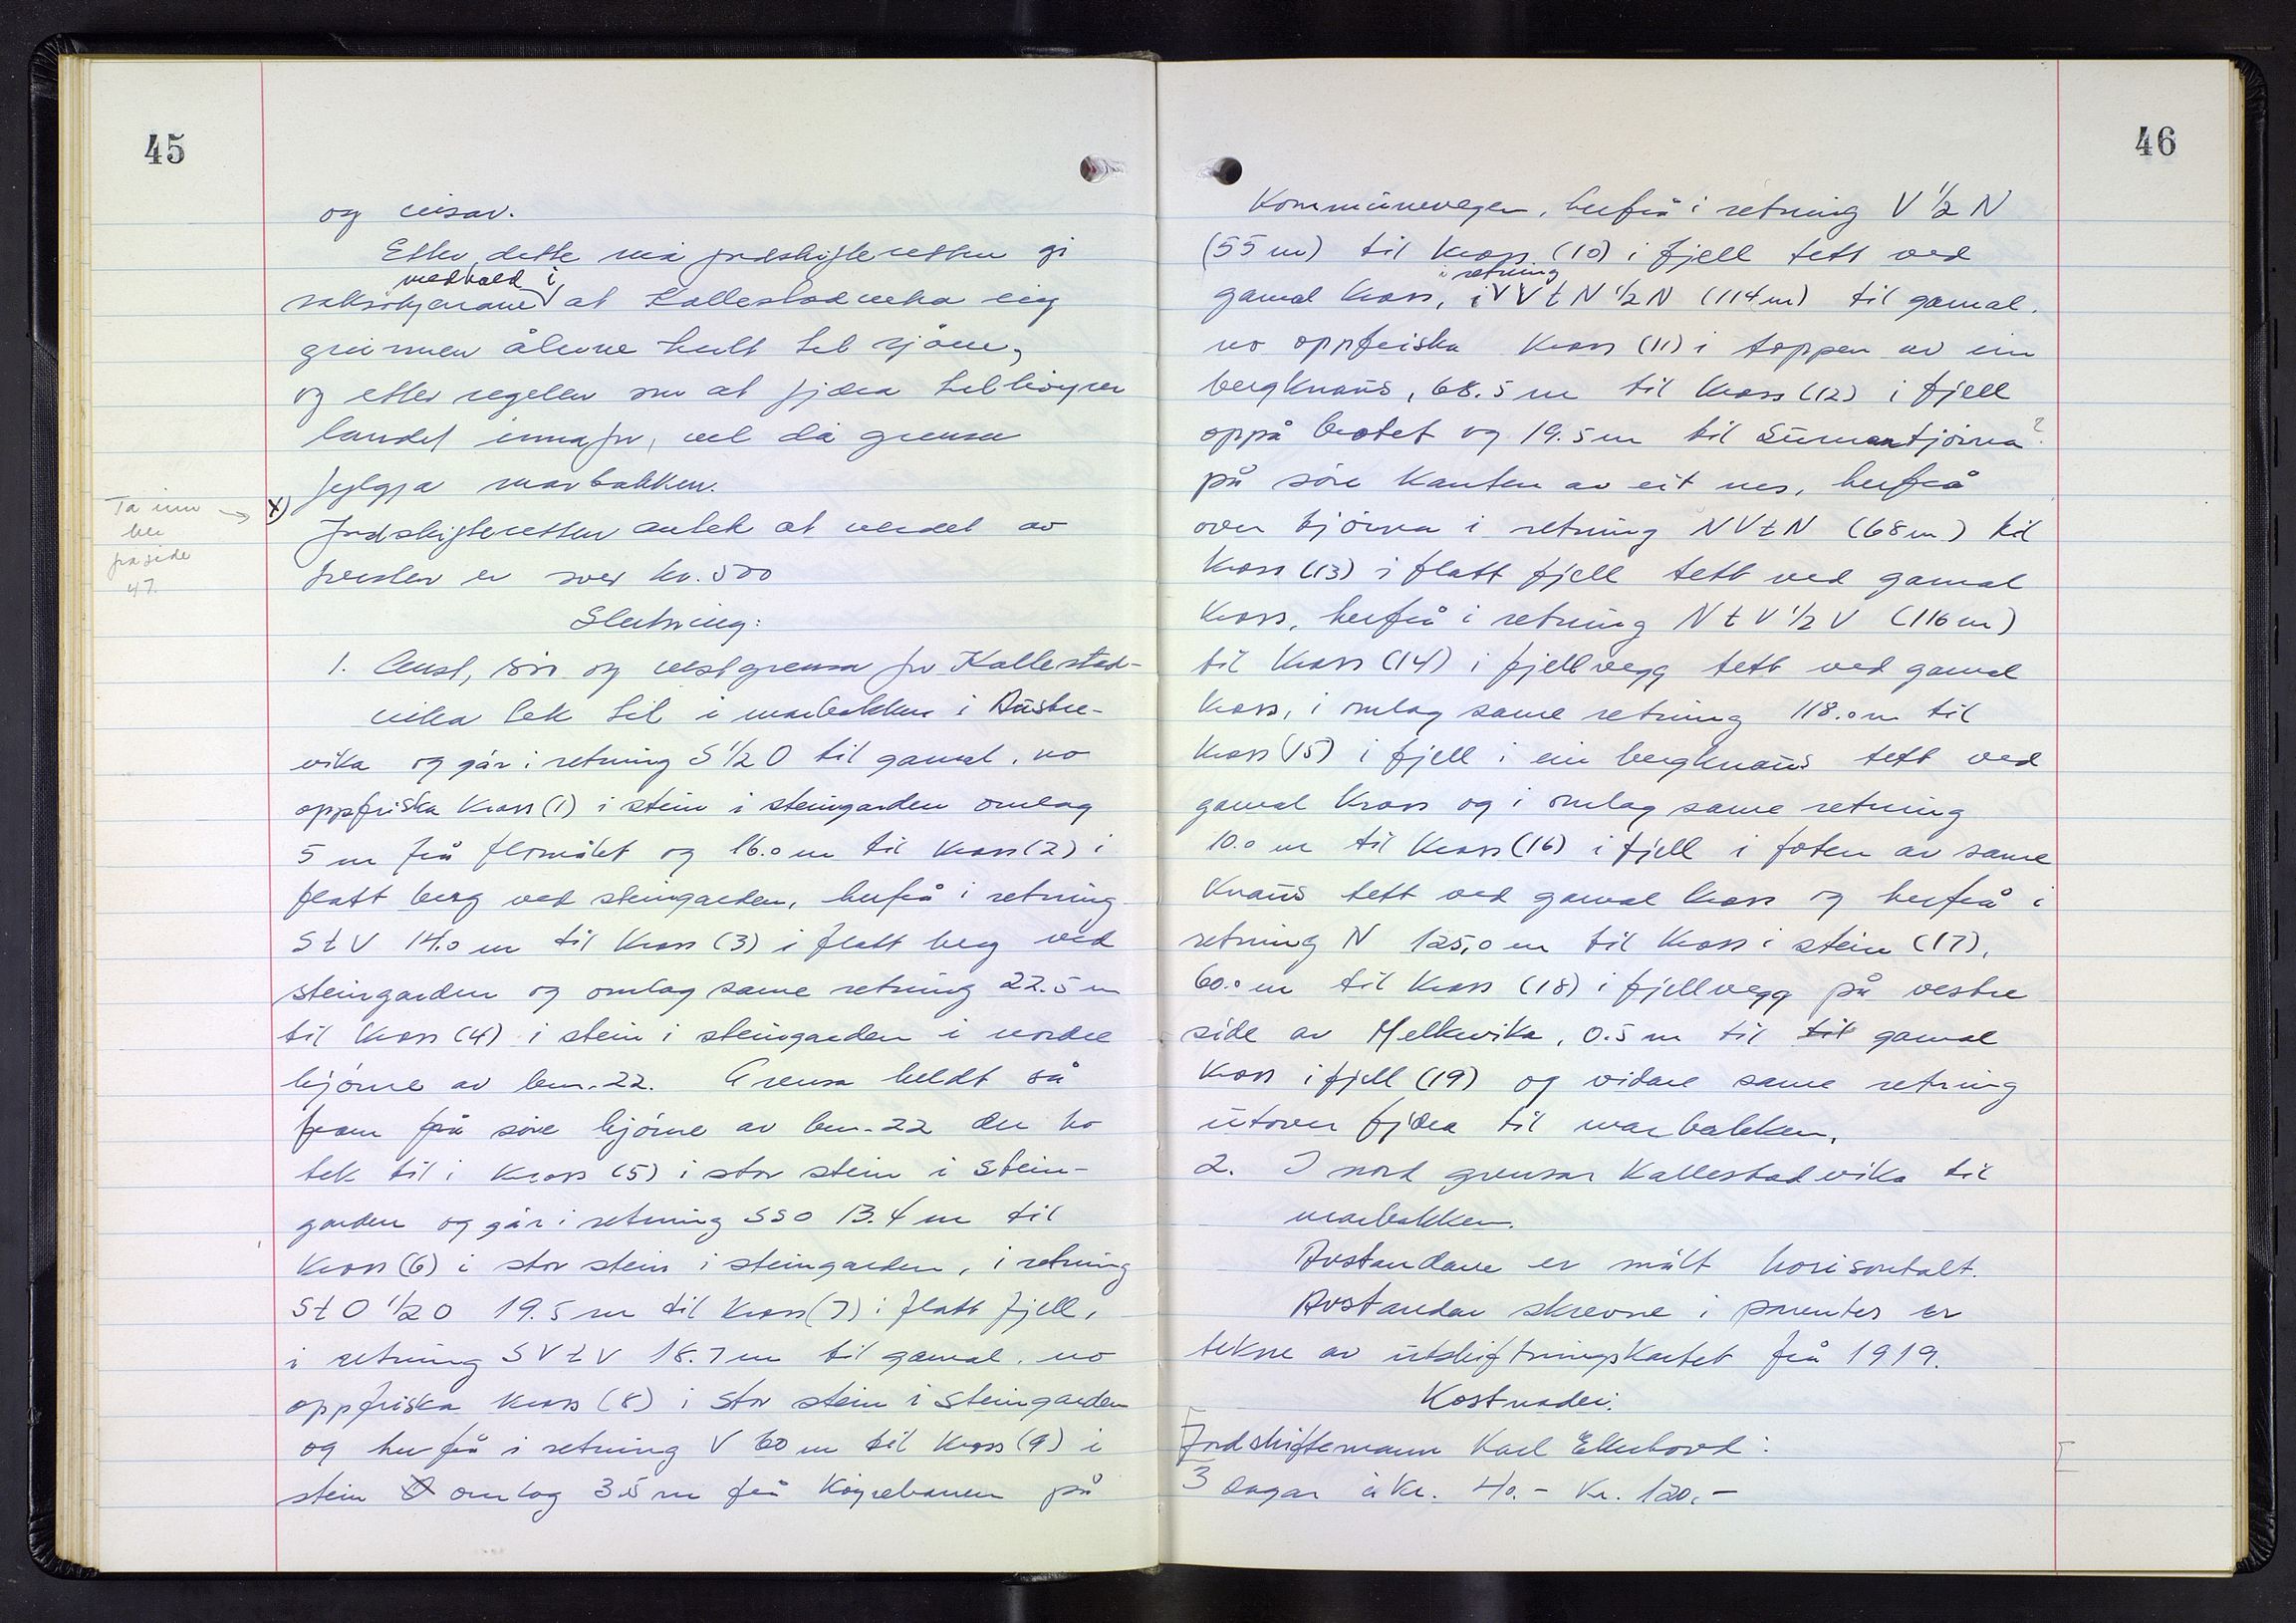 45
og visar.
Etter dette må jordskifteretten gi
medhald i
saksøkjarane V at Kallestadvika eig
grunnen åleine heilt til sjøen,
og etter regelen om at fjøra tilhøyrer
landet innafor, vil då grensa
fylgja marbakken.
Ta inn her frå side 47. → X)
Jordskifteretten antek at verdet av
tvisten er over kr. 500
Slutning:
1. Aust, sør og vestgrensa for Kallestad-
vika tek til i marbakken i Austre-
vika og går i retning S 1/2 O til gamal, no
oppfriska kross (1) i stein i steingarden omlag
5 m frå flomålet og 16.0 m til kross (2) i
flatt berg ved steingarden, herfrå i retning
S t V 14.0 m til kross (3) i flatt berg ved
steingarden og omlag same retning 22.5 m
til kross (4) i stein i steingarden i nordre
hjørne av bnr. 22. Grensa heldt så
fram frå søre hjørne av bnr. 22 der ho
tek til i kross (5) i stor stein i stein-
garden og går i retning SSO 13.4 m til
kross (6) i stor stein i steingarden, i retning
S t O 1/2 O 19.5 m til kross (7) i flatt fjell,
i retning S V t V 18.7 m til gamal, no
oppfriska kross (8) i stor stein i steingarden
og herfrå i retning V 60 m til kross (9) i
stein omlag 3.5 m frå køyrebanen på
46
Kommunevegen, herfrå i retning V 1/2 N
(55 m) til kross (10) i fjell tett ved
i retning
gamal kross, i V V t N 1/2 N (114 m) til gamal,
no oppfriska kross (11) i toppen av ein
bergknaus, 68.5 m til kross (12) i fjell
oppå brotet og 19.5 m til Sumantjørna?
på søre kanten av eit nes, herfrå
over tjørna i retning N V t N (68 m) til
kross (13) i flatt fjell tett ved gamal
kross, herfrå i retning N t V 1/2 V (116 m)
til kross (14) i fjellvegg tett ved gamal
kross, i omlag same retning 118.0 m til
kross (15) i fjell i ein bergknaus tett ved
gamal kross og i omlag same retning
10.0 m til kross (16) i fjell i foten av same
knaus tett ved gamal kross og herfrå i
retning N 125,0 m til kross i stein (17),
60.0 m til kross (18) i fjellvegg på vestre
side av Melkevika, 0.5 m til til gamal
kross i fjell (19) og vidare same retning
utover fjøra til marbakken.
2. I nord grensar Kallestadvika til
marbakken.
Avstandane er målt horisontalt.
Avstandar skrevne i parentes er
tekne av utskiftningskartet frå 1919.
Kostnader:
Jordskiftemann Karl Ekerhovd:
3 dagar à kr. 40.- kr. 120.-